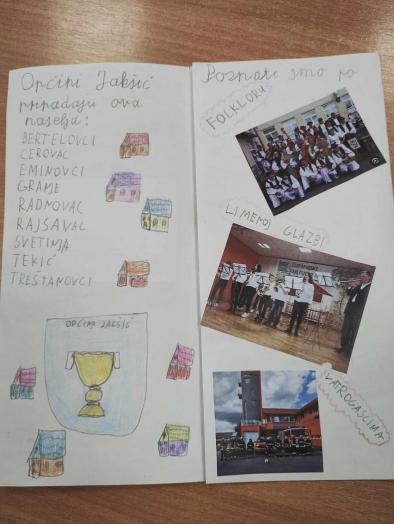 Općini Jakšić
pripadaju ova
naselja:
BERTELOVCI
CEROVAC
EMINOVCI
GRANJE
RADNOVAC
RAJSAVAC
SVETINJA
TEKIĆ
TREŠTANOVCI
OPĆINA JAKŠIĆ
Poznati smo po
FOLKLORU
LIMENOJ GLAZBI
VATROGASCIMA